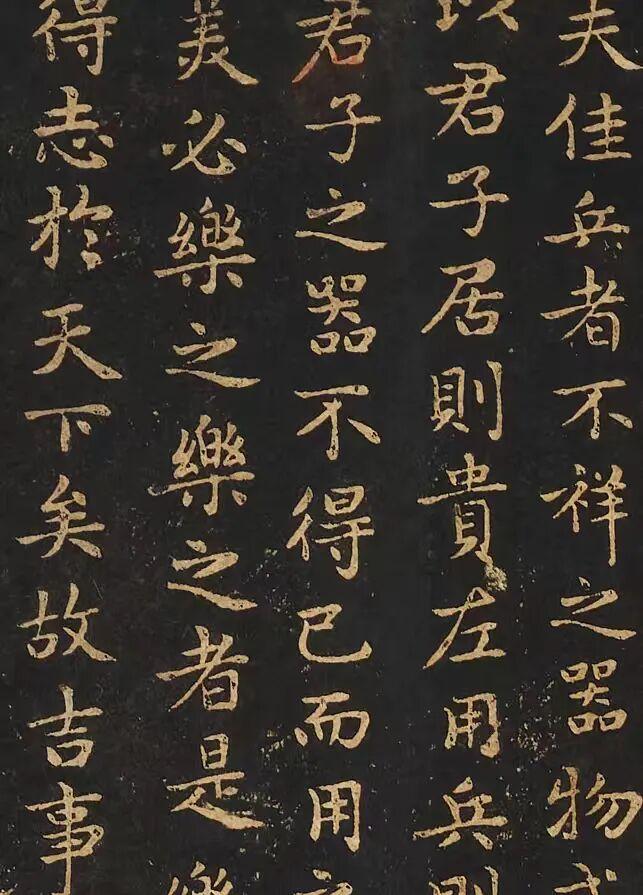 夫佳兵者不祥之器物
君子居則貴左用兵
君子之器不得已而用
美必樂之樂之者是
得志於天下矣故吉事